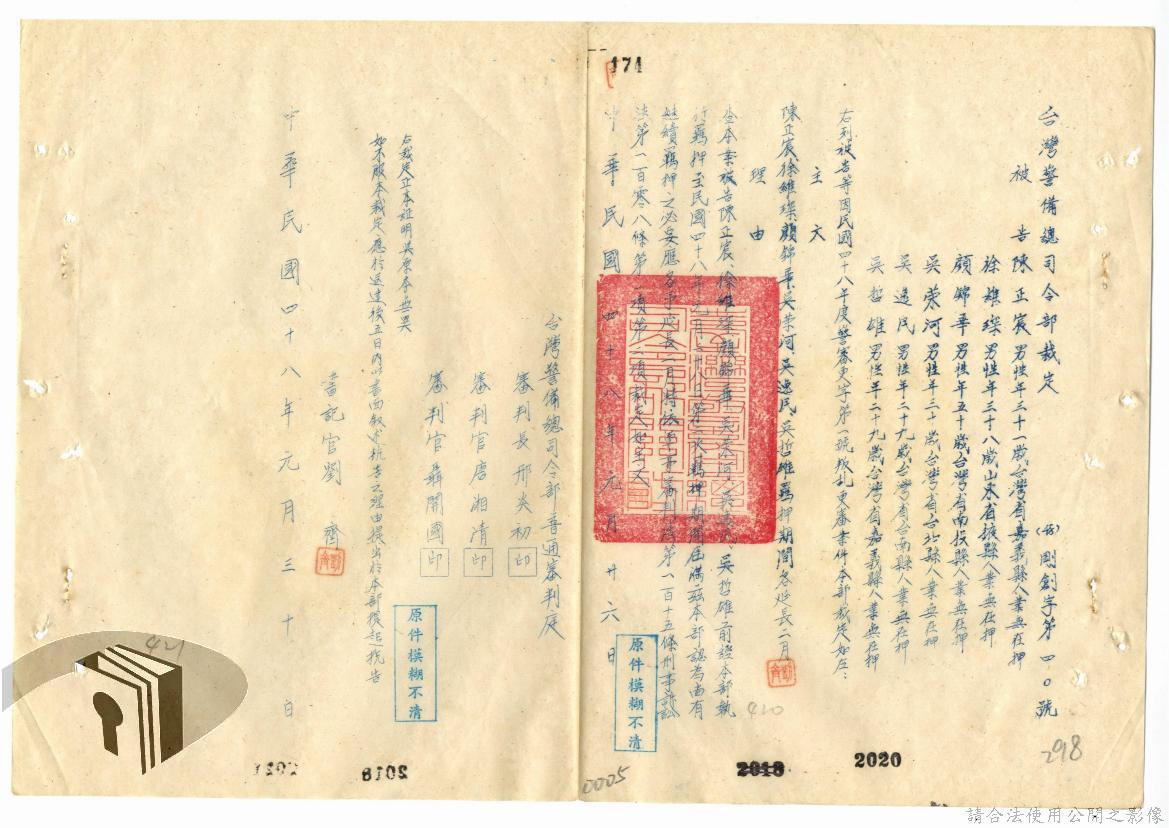 174
台灣警備總司令部裁定
剛創字第四〇號
被告陳正宸男性年三十一歲台灣省嘉義縣人業無在押
徐維琛男性年三十八歲山東省掖縣人業無在押
顧錦華男性年五十歲台灣省南投縣人業無在押
吳榮河男性年三十歲台灣省台北縣人業無在押
吳逸民男性年二十九歲台灣省台南縣人業無在押
吳哲雄男性年二十九歲台灣省嘉義縣人業無在押
右列被告等因民國四十八年度警審更字第一號叛亂更審案件本部裁定如左：
主文
陳正宸徐維琛顧錦華吳榮河吳逸民吳哲雄羈押期間各延長二月
理由
查本案被告陳正宸、徐維琛、顧錦華、吳榮河、吳逸民、吳哲雄前經本部執
行羈押至民國四十八年元月卅日止第 次羈押期間屆滿茲本部認為尚有
繼續羈押之必要應各予延長二月特依軍事審判法第一百十五條刑事訴訟
法第一百零八條第一項第二項裁定如主文
中華民國四十八年元月廿六日
台灣警備總司令部普通審判庭
審判長邢炎初印
審判官唐湘清印
審判官聶開國印
右裁定正本證明與原本無異
如不服本裁定應於送達後五日內以書面敘述抗告之理由提出於本部提起抗告
書記官劉齊
中華民國四十八年元月三十日
原件模糊不清
原件模糊不清
420
421
298
0005
2018
2020
2018
2021
請合法使用公開之影像